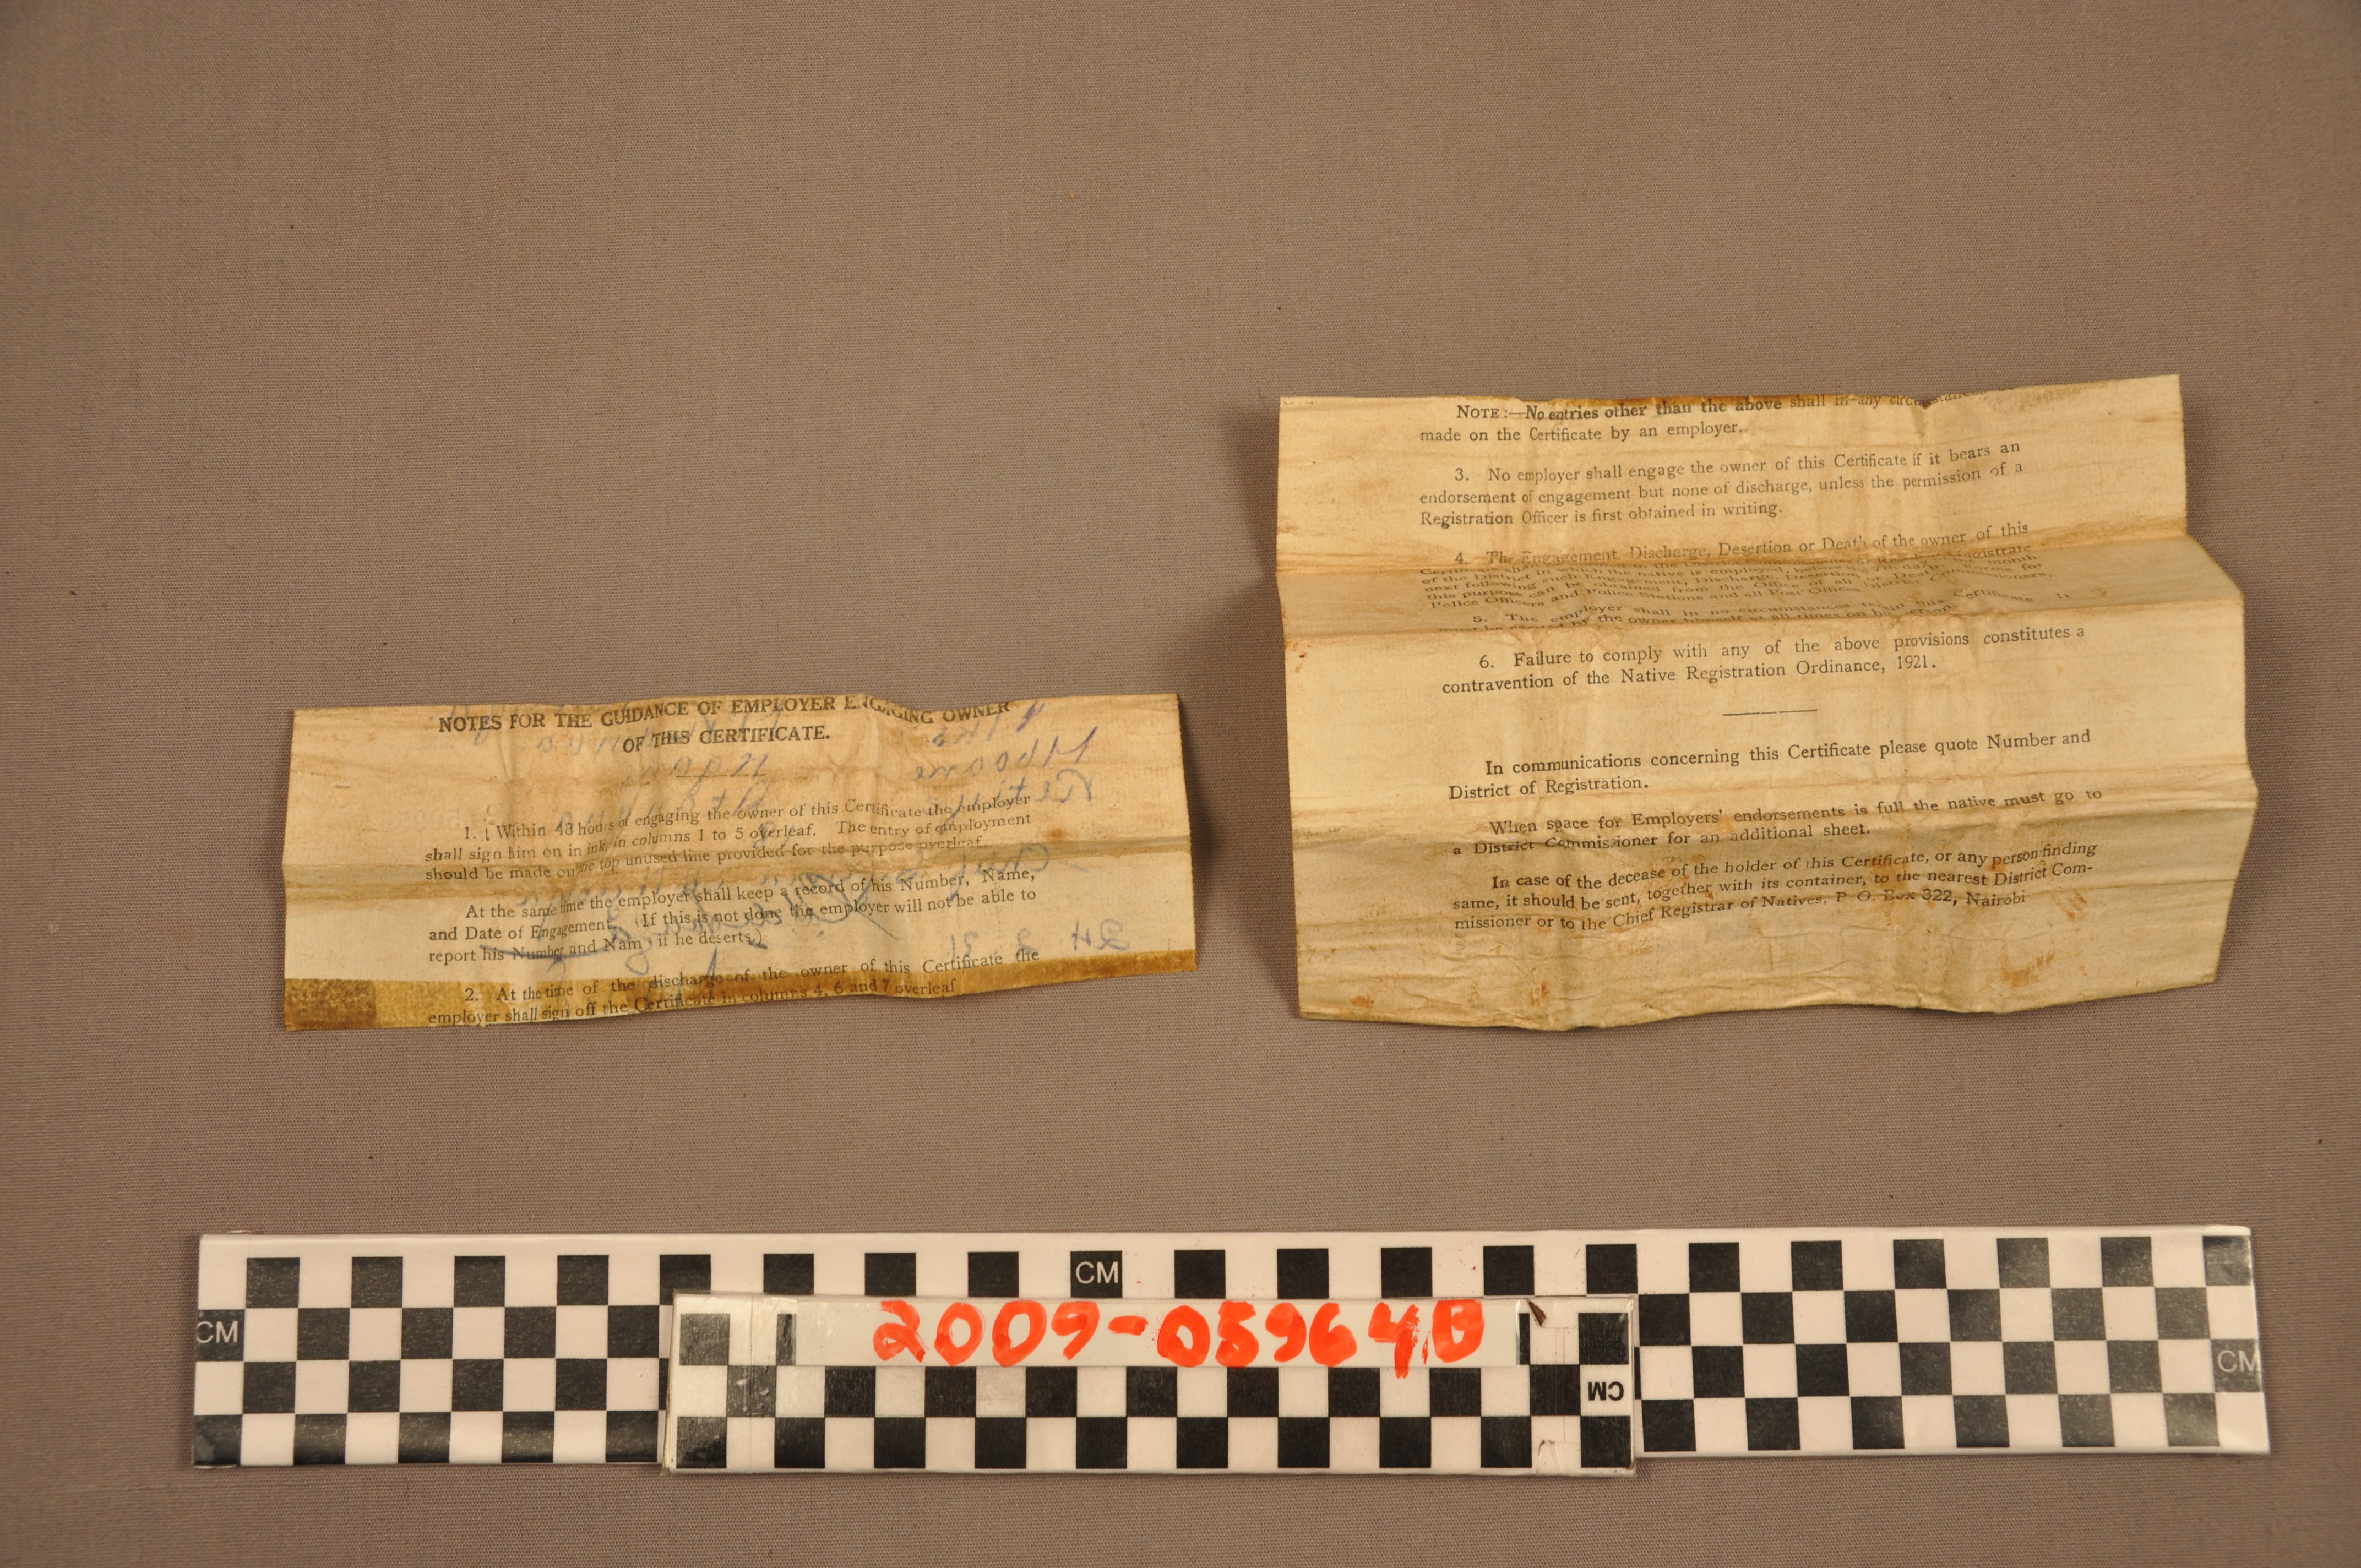 NOTES FOR THE GUIDANCE OF EMPLOYER ENGAGING OWNER
OF THIS CERTIFICATE.
1. Within 48 hours of engaging the owner of this Certificate the employer
shall sign him on in ink, in columns 1 to 5 overleaf. The entry of employment
should be made on the top unused line provided for the purpose overleaf.
At the same time the employer shall keep a record of his Number, Name,
and Date of Engagement. (If this is not done the employer will not be able to
report his Number and Name if he deserts.)
2. At the time of the discharge of the owner of this Certificate the
employer shall sign off the Certificate in columns 4, 6 and 7 overleaf
NOTE:—No entries other than the above shall in any circumstances
made on the Certificate by an employer.
3. No employer shall engage the owner of this Certificate if it bears an
endorsement of engagement but none of discharge, unless the permission of a
Registration Officer is first obtained in writing.
4. The Engagement, Discharge, Desertion or Death of the owner of this
of the District in which the native is employed, before the
next following such Engagement, Discharge, Desertion or Death.
this purpose can be obtained from the Office of all District Commissioners,
Police Officers and Police Stations and all Post Offices.
5. The employer shall in no circumstances retain this Certificate. It
must be carried by the owner himself at all times on his person.
6. Failure to comply with any of the above provisions constitutes a
contravention of the Native Registration Ordinance, 1921.
In communications concerning this Certificate please quote Number and
District of Registration.
When space for Employers' endorsements is full the native must go to
a District Commissioner for an additional sheet.
In case of the decease of the holder of this Certificate, or any person finding
same, it should be sent, together with its container, to the nearest District Com-
missioner or to the Chief Registrar of Natives, P. O. Box 322, Nairobi
CM
CM
CM
2009-05964B
CM